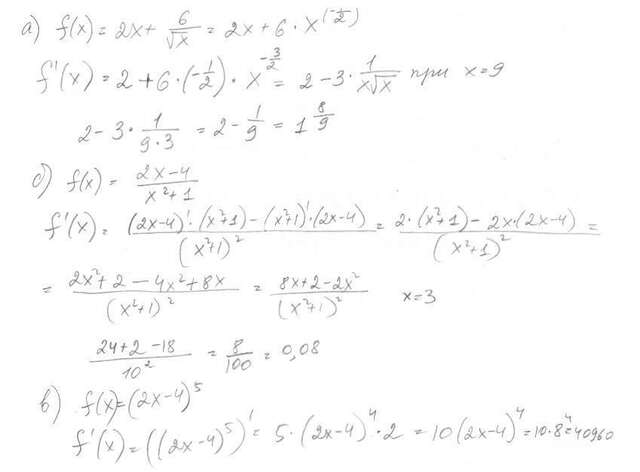 а) f(x) = 2x + 6/√x = 2x + 6 · x^(-1/2)
f'(x) = 2 + 6 · (-1/2) · x^(-3/2) = 2 - 3 · 1/(x√x) при x = 9
2 - 3 · 1/(9·3) = 2 - 1/9 = 1 8/9
б) f(x) = (2x-4)/(x²+1)
f'(x) = ((2x-4)' · (x²+1) - (x²+1)' · (2x-4))/(x²+1)² = (2 · (x²+1) - 2x · (2x-4))/(x²+1)² =
= (2x² + 2 - 4x² + 8x)/(x²+1)² = (8x + 2 - 2x²)/(x²+1)² x = 3
(24 + 2 - 18)/10² = 8/100 = 0,08
в) f(x) = (2x-4)⁵
f'(x) = ((2x-4)⁵)' = 5 · (2x-4)⁴ · 2 = 10(2x-4)⁴ = 10·8⁴ = 40960